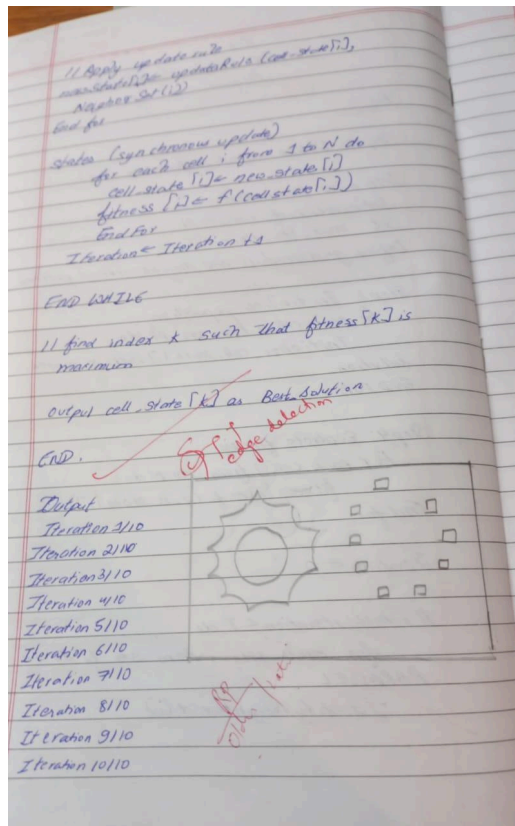 // Apply update rule
newState[i] ← updateRule (cell-state[i],
Neighbor Set (i))
End for
states (synchronous update)
for each cell i from 1 to N do
cell_state [i] ← new_state [i]
fitness [i] ← f (cell state[i])
End For
Iteration ← Iteration + 1
END WHILE
// find index k such that fitness [k] is
maximum
Output cell_state [k] as Best Solution
END.
edge detection
Output
Iteration 1/10
Iteration 2/10
Iteration 3/10
Iteration 4/10
Iteration 5/10
Iteration 6/10
Iteration 7/10
Iteration 8/10
Iteration 9/10
Iteration 10/10